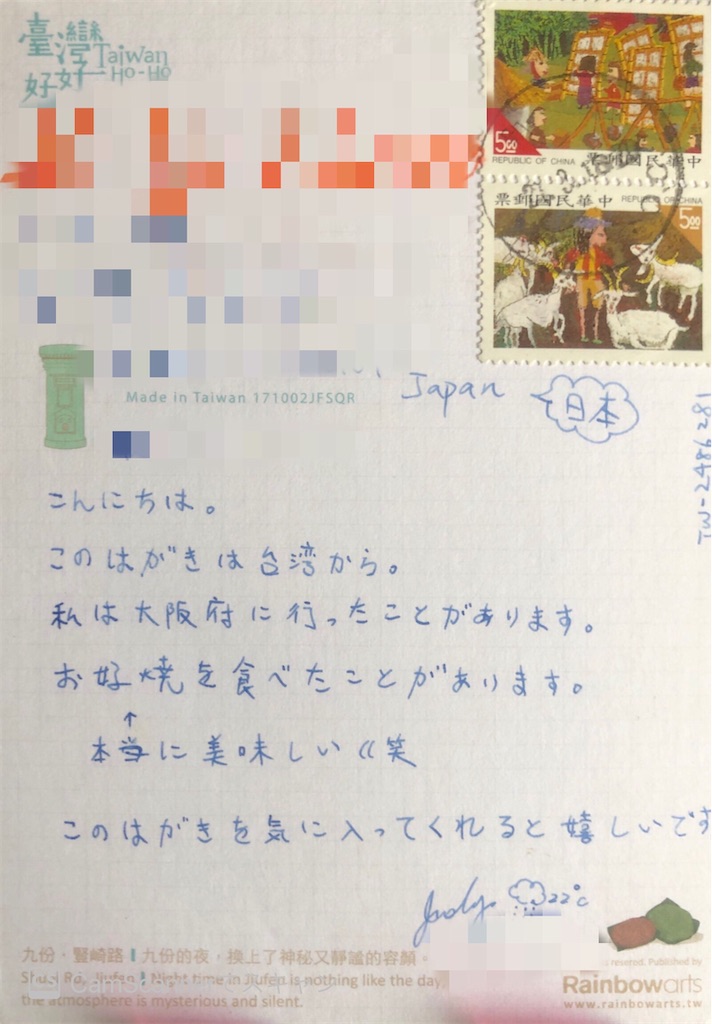 臺灣
好好
Taiwan
HO-HO
5.00
REPUBLIC OF CHINA 票郵國民華中
票郵國民華中 REPUBLIC OF CHINA
5.00
Japan
日本
Made in Taiwan 171002JFSQR
TW-2486281
こんにちは。
このはがきは台湾から。
私は大阪府に行ったことがあります。
お好焼を食べたことがあります。
↑
本当に美味しい((笑
このはがきを気に入ってくれると嬉しいです
22℃
九份・豎崎路 | 九份的夜,換上了神秘又靜謐的容顏。
Shuqi Rd., Jiufen | Night time in Jiufen is nothing like the day,
the atmosphere is mysterious and silent.
reserved. Published by
Rainbowarts
www.rainbowarts.tw